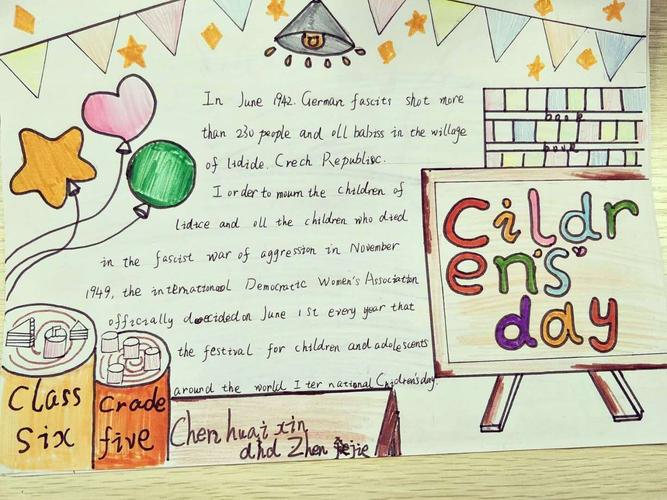 In June 1942. German fascits shot more
than 230 people and oll babiss in the willage
of lidide. Crech Republisc.
I order to moum the children of
lidice and oll the children who died
in the fascist war of aggression in November
1949, the internationool Democratic Women's Association
officially decided on June 1st every year that
the festival for children and adolescents
around the world I ter national Cildren's day.
book
book
Cildr
en's
day
Class
Six
Crade
five
Chen huai xin
and Zhen